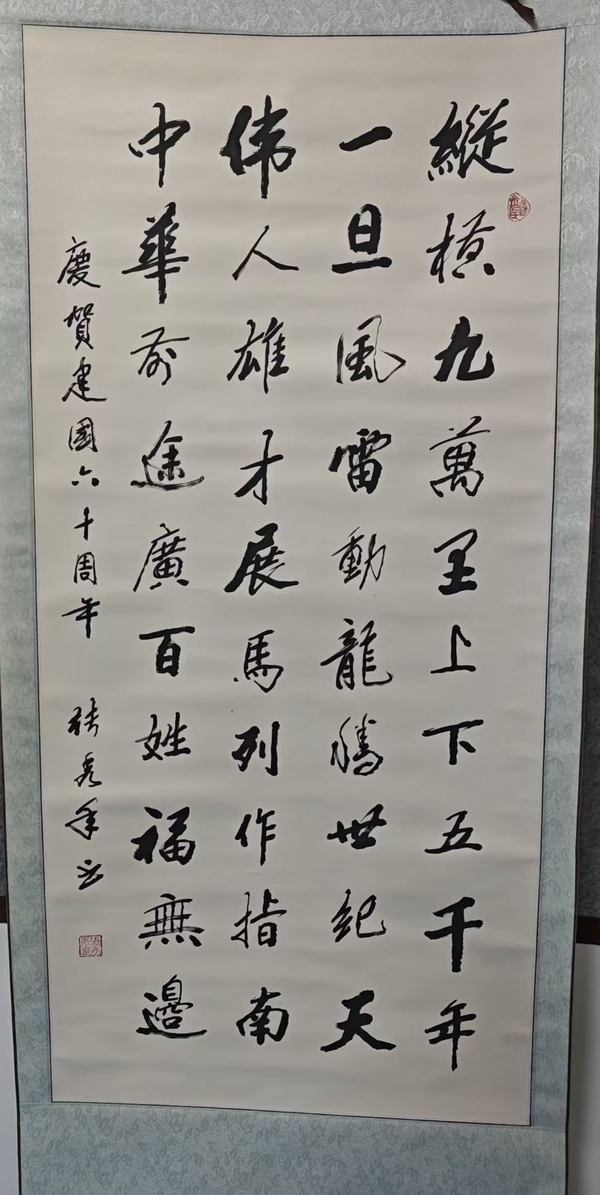 縱橫九萬里上下五千年
一旦風雷動龍騰世紀天
伟人雄才展馬列作指南
中華前途廣百姓福無邊
慶賀建國六十周年 張秀年书